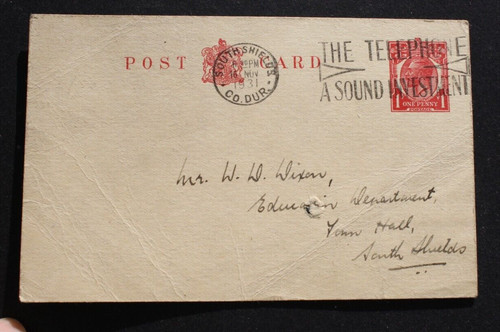 POST CARD
SOUTH SHIELDS
16 NOV
1931
CO. DUR.
THE TELEPHONE
A SOUND INVESTMENT
1 ONE PENNY 1
Mr. W. D. Dixon,
Education Department,
Town Hall,
South Shields